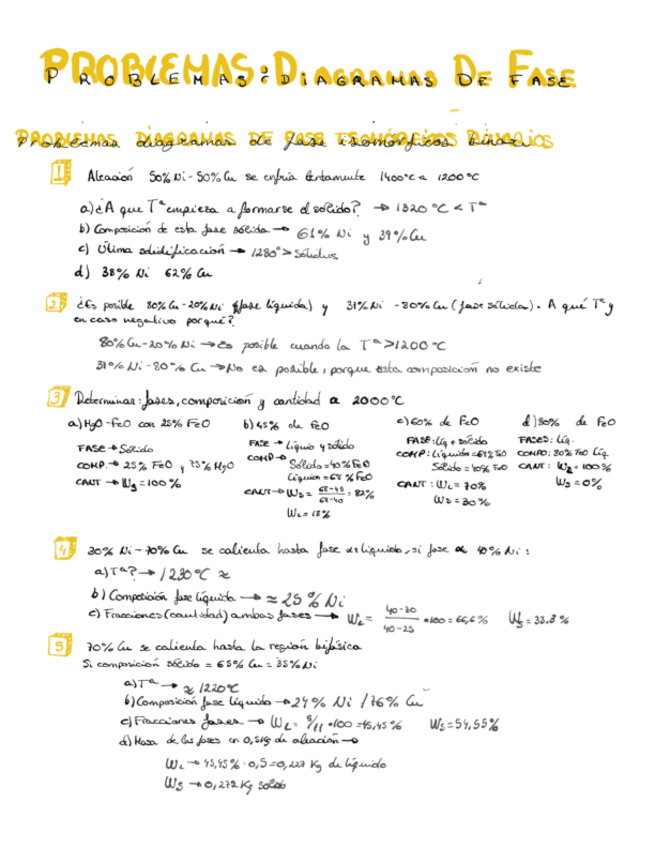 PROBLEMAS: DIAGRAMAS DE FASE
Problemas diagramas de fase isomórficos binarios
1 Aleación 50% Ni - 50% Cu se enfría lentamente 1400°C a 1200°C
a) ¿A que Tª empieza a formarse el sólido? → 1320 °C < Tª
b) Composición de esta fase sólida → 61% Ni y 39% Cu
c) Última solidificación → 1280° > Solidus
d) 38% Ni 62% Cu
2 ¿Es posible 80% Cu - 20% Ni (fase líquida) y 37% Ni - 80% Cu (fase sólida). A qué Tª y
en caso negativo porqué?
80% Cu - 20% Ni → es posible cuando la Tª > 1200 °C
37% Ni - 80% Cu → No es posible, porque esta composición no existe
3 Determinar: fases, composición y cantidad a 2000°C
a) MgO - FeO con 25% FeO
FASE → Sólido
COMP. → 25% FeO y 75% MgO
CANT → Ws = 100%
b) 45% de FeO
FASE → Líquido y sólido
COMP → Sólido = 40% FeO
Líquido = 68% FeO
CANT → Ws = 68-45 / 68-40 = 82%
WL = 18%
c) 60% de FeO
FASE: Líq + sólido
COMP: Líquido = 68% FeO
Sólido = 40% FeO
CANT: WL = 70%
Ws = 30%
d) 80% de FeO
FASES: Líq.
COMPO: 80% FeO Líq
CANT: WL = 100%
Ws = 0%
4 30% Ni - 70% Cu se calienta hasta fase α + líquido, si fase α 40% Ni:
a) Tª? → 1230 °C ≈
b) Composición fase líquida → ≈ 25% Ni
c) Fracciones (cantidad) ambas fases → WL = 40-30 / 40-25 · 100 = 66,6% Ws = 33.3%
5 70% Cu se calienta hasta la región bifásica
Si composición sólido = 65% Cu = 35% Ni
a) Tª → ≈ 1220°C
b) Composición fase líquido → 24% Ni / 76% Cu
c) Fracciones fases → WL = 5/11 · 100 = 45,45% Ws = 54,55%
d) Masa de las fases en 0,5Kg de aleación →
WL → 45,45% · 0,5 = 0,227 Kg de líquido
Ws → 0,272 Kg sólido